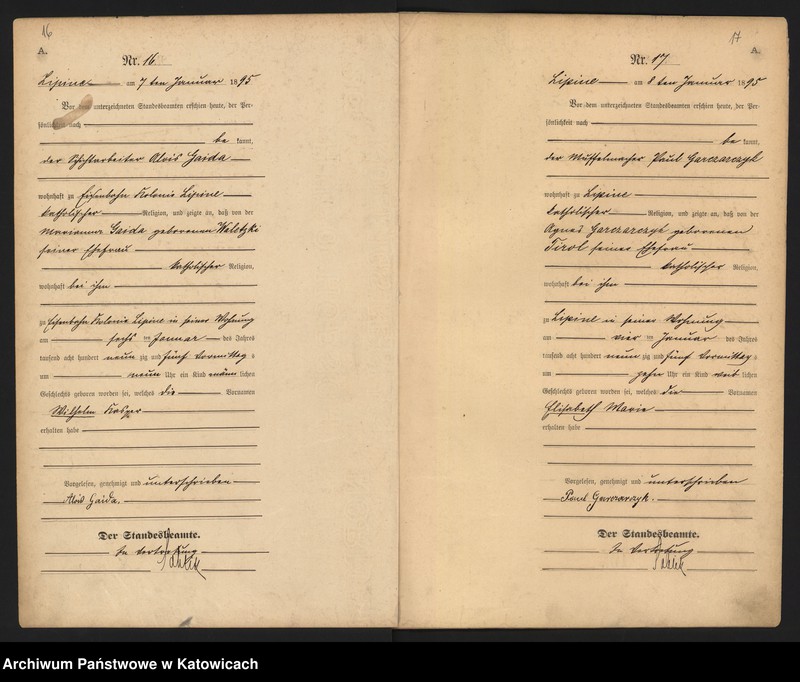 16
A.
Nr. 16
Lipine am 7 ten Januar 1895
Vor dem unterzeichneten Standesbeamten erschien heute, der Per-
sönlichkeit nach
be kannt,
der Schichtarbeiter Alois Gaida
wohnhaft zu Eisenbahn Kolonie Lipine
katholischer Religion, und zeigte an, daß von der
Marianna Gaida geborenen
seiner Ehefrau
katholischer Religion,
wohnhaft bei ihm
zu Eisenbahn Kolonie Lipine in seiner Wohnung
am sechs ten Januar des Jahres
tausend acht hundert neun zig und fünf Vormittag s
um neun Uhr ein Kind männ lichen
Geschlechts geboren worden sei, welches die Vornamen
Wilhelm
erhalten habe
Vorgelesen, genehmigt und unterschrieben
Alois Gaida.
Der Standesbeamte.
In Vertretung
17
A.
Nr. 17
Lipine am 8 ten Januar 1895
Vor dem unterzeichneten Standesbeamten erschien heute, der Per-
sönlichkeit nach
be kannt,
der Muffelmacher Paul Garczarczyk
wohnhaft zu Lipine
katholischer Religion, und zeigte an, daß von der
Agnes Garczarczyk geborenen
Tirol seiner Ehefrau
katholischer Religion,
wohnhaft bei ihm
zu Lipine in seiner Wohnung
am vier ten Januar des Jahres
tausend acht hundert neun zig und fünf Vormittag s
um zehn Uhr ein Kind weib lichen
Geschlechts geboren worden sei, welches die Vornamen
Elisabeth Marie
erhalten habe
Vorgelesen, genehmigt und unterschrieben
Paul Garczarczyk.
Der Standesbeamte.
In Vertretung
Archiwum Państwowe w Katowicach